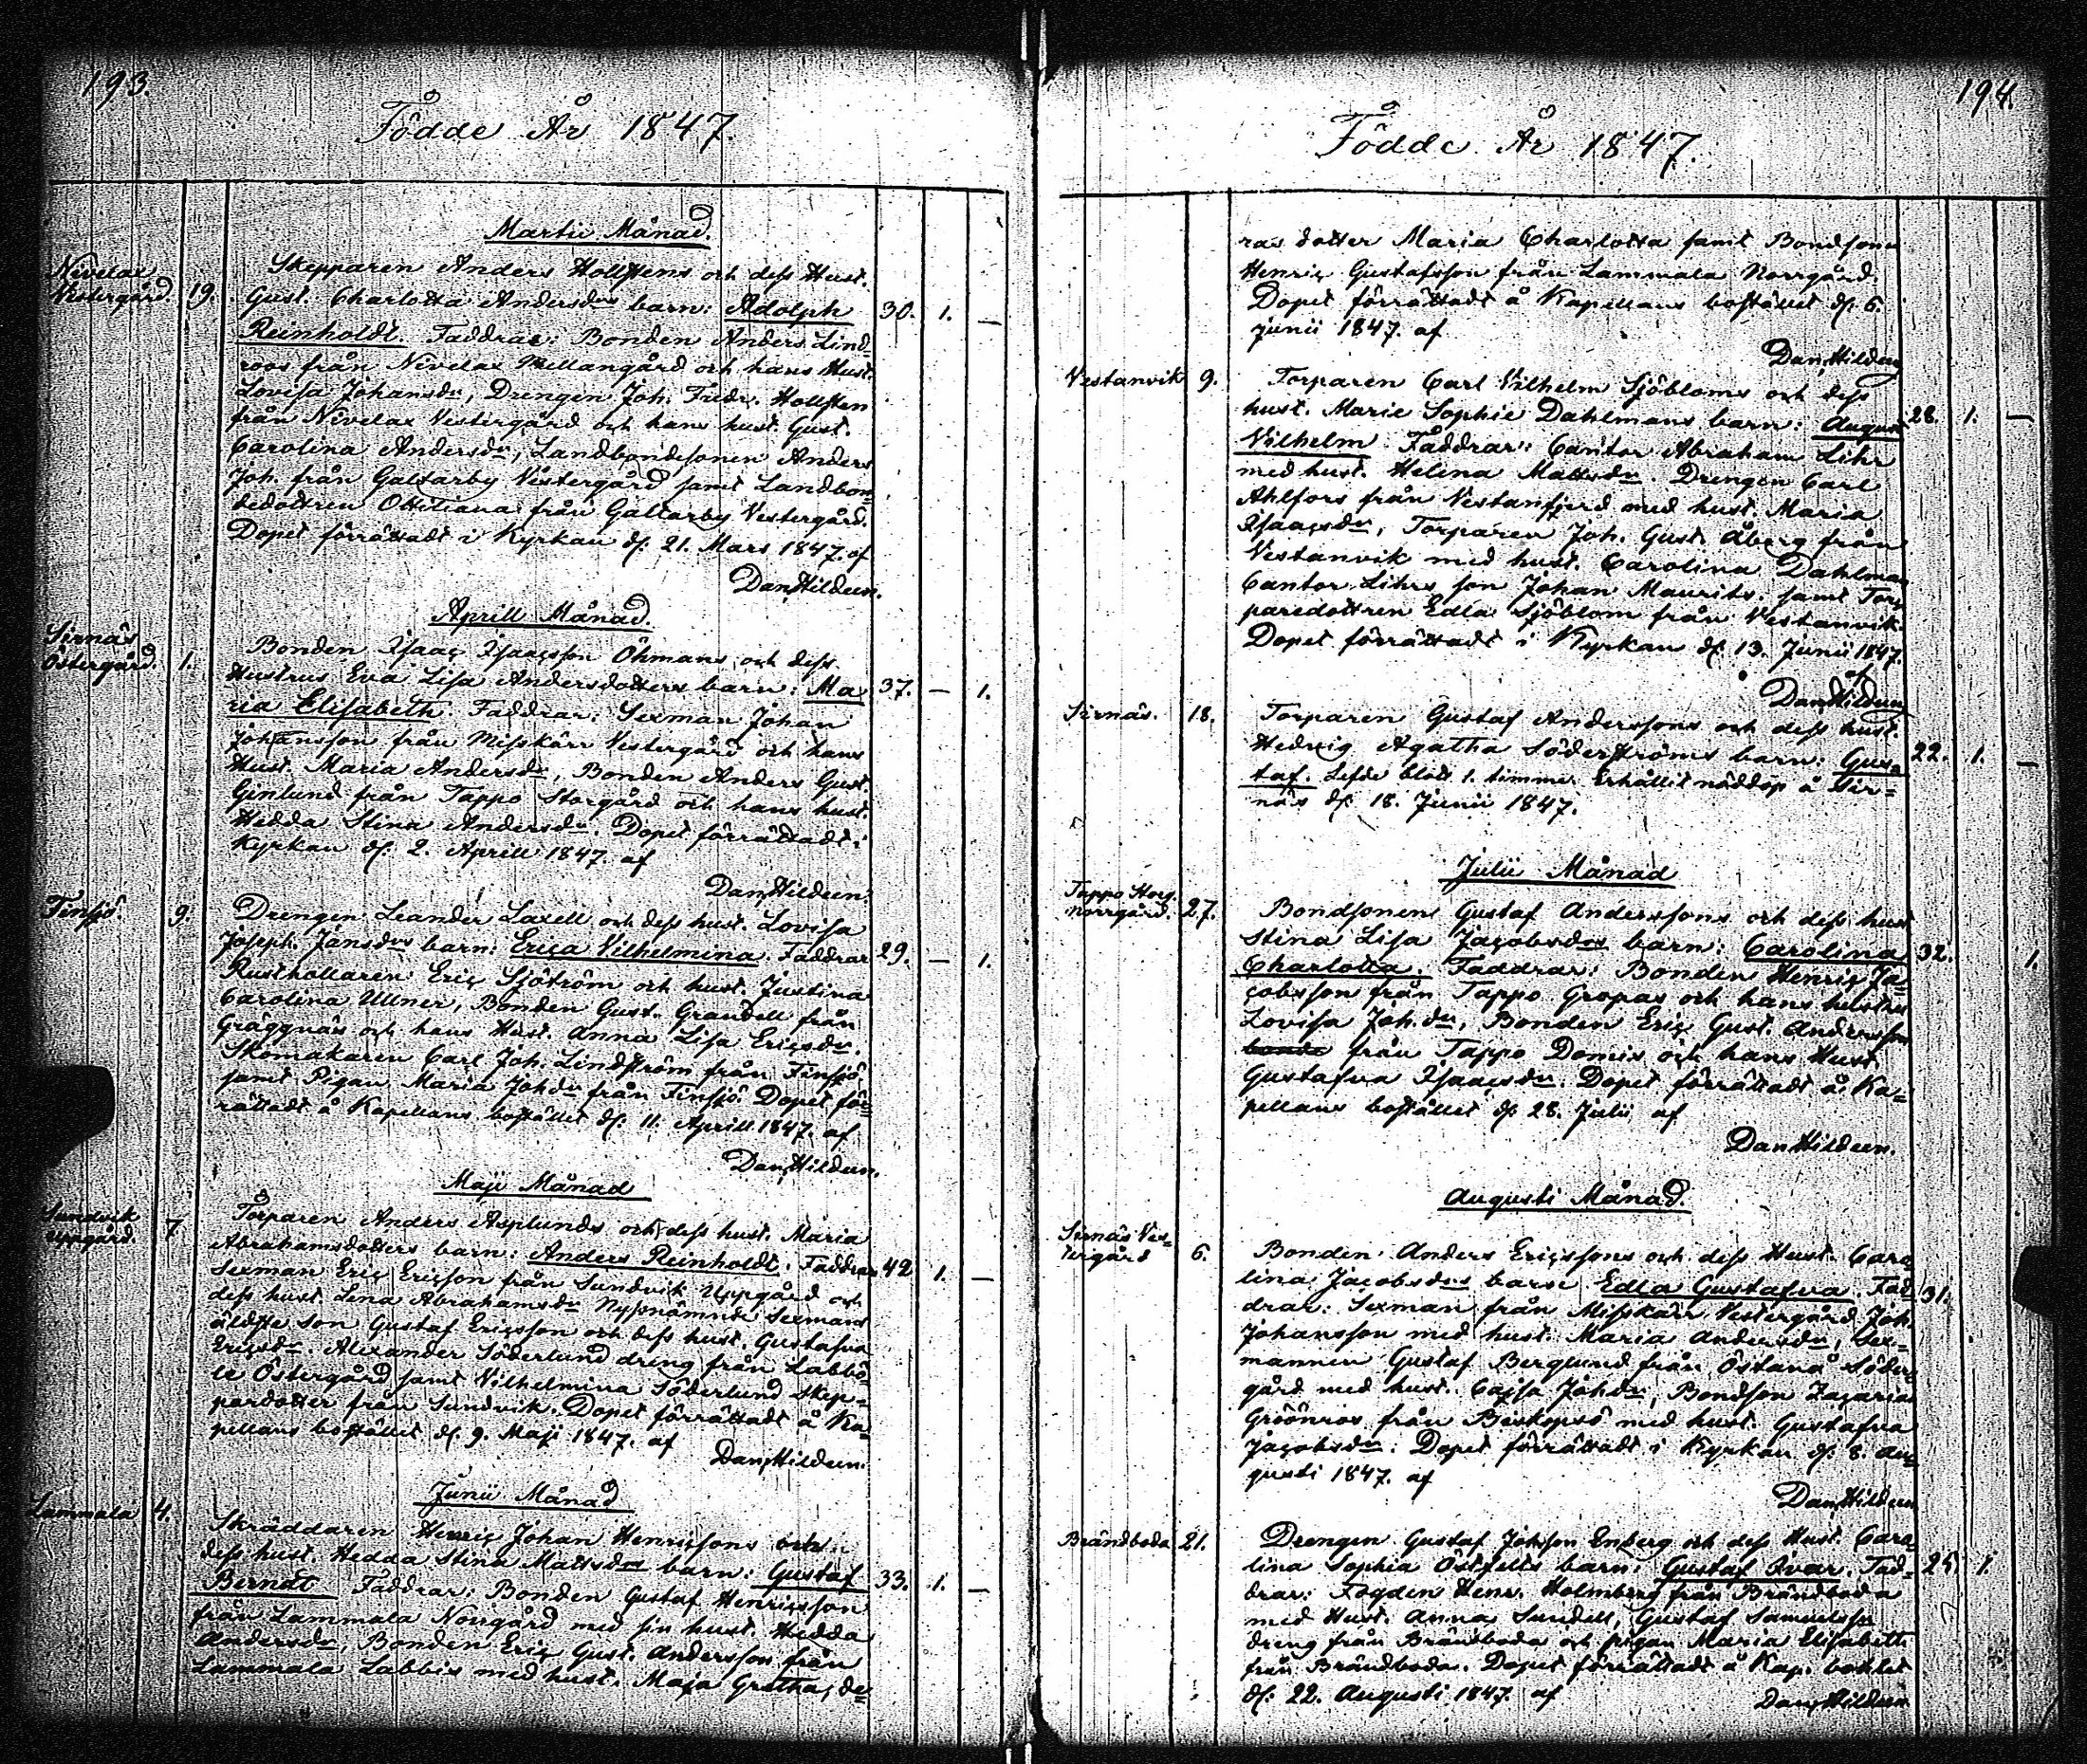 193.
Födde År 1847.
Martii Månad.
Nivelax
Vestergård. 19. Skepparen Anders Hollstens och dess Hust.
Gust. Charlotta Andersdrs barn: Adolph 30. 1. —
Reinholdt. Faddrar: Bonden Anders Lind=
roos från Nivelax Mellangård och hans Hust.
Lovisa Johansdr, Drengen Joh. Fredr. Hollsten
från Nivelax Vestergård och hans hust. Gust.
Carolina Andersdr, Landbondesonen Anders
Joh. från Galtarby Vestergård samt Landbon=
dedottren Ottiliana från Galtarby Vestergård.
Dopet förrättadt i Kyrkan d: 21. Mars 1847. af
Dan. Hildeen.
Aprill Månad.
Sirnäs
Östergård. 1. Bonden Isaac Isaacsson Öhmans och dess
Hustrus Eva Lisa Andersdotters barn: Ma 37. — 1.
ria Elisabeth. Faddrar: Sexman Johan
Johansson från Misskärr Vestergård och hans
Hust. Maria Andersdr, Bonden Anders Gust.
Ginlund från Tappo Storgård och hans hust.
Hedda Stina Andersdr. Dopet förrättadt i
Kyrkan d: 2. Aprill 1847. af
Dan. Hildeen.
Finsjö 9. Drengen Leander Laxell och dess hust. Lovisa
Joseph. Jansdrs barn: Erica Vilhelmina. Faddrar 29. — 1.
Rusthollaren Eric Sjöström och hust. Justina
Carolina Ullner, Bonden Gust. Grandell från
Gräggnäs och hans Hust. Anna Lisa Ericsdr.
Skomakaren Carl Joh. Lindström från Finsjö
samt Pigan Maria Johdr från Finsjö. Dopet för=
rättadt å Kapellans bostället d: 11. Aprill 1847. af
Dan. Hildeen.
Maji Månad
Sundvik
Uppgård. 7. Torparen Anders Asplunds och dess hust. Maria
Abrahamsdotters barn: Anders Reinholdt. Faddrar 42 1. —
Sexman Eric Ericsson från Sundvik Uppgård och
dess hust Lena Abrahamsdr Nyssnämnde Sexmans
äldste son Gustaf Ericsson och dess hust. Gustafva
Ericsdr. Alexander Söderlund dreng från Labbö=
le Östergård samt Vilhelmina Söderlund skep=
pardotter från Sundvik. Dopet förrättadt å Ka=
pellans bostället d. 9. Maji 1847. af
Dan. Hildeen.
Junii Månad
Lammala 4. Skräddaren Henric Johan Henricsons och
dess hust. Hedda Stina Mattsdrs barn: Gustaf 33. 1. —
Berndt Faddrar: Bonden Gustaf Henricsson
från Lammala Norrgård med sin hust. Hedda
Andersdr, Bonden Eric Gust. Andersson från
Lammala Labbis med hust. Maja Gretha, de=
194.
Födde År 1847.
ras dotter Maria Charlotta samt Bondsonen
Henric Gustafsson från Lammala Norrgård.
Dopet förrättadt å Kapellans bostället d: 6.
junii 1847. af
Dan. Hildeen
Vestanvik 9. Torparen Carl Vilhelm Sjöbloms och dess
hust. Marie Sophie Dahlmans barn: August 28. 1. —
Vilhelm. Faddrar: Cantor Abraham Lihr
med hust. Helena Mattsdr. Drengen Carl
Ahlfors från Vestanfjerd med hust. Maria
Isaacsdr, Torparen Joh. Gust. Åberg från
Vestanvik med hust. Carolina Dahlman
Cantor Lihrs son Johan Maurits. samt Tor=
paredottren Edla Sjöblom från Vestanvik.
Dopet förrättadt i Kyrkan d: 13. Junii 1847.
af
Dan. Hildeen
Sirnäs. 18. Torparen Gustaf Anderssons och dess hust.
Hedvig Agatha Söderströms barn: Gus= 22. 1. —
taf. Lefde blott 1. timme. Erhållit nöddop å Sir=
näs d: 18. Junii 1847.
Julii Månad
Tappo Storg.
Norrgård. 27. Bondsonens Gustaf Anderssons och dess hust
Stina Lisa Jacobsdrs barn: Carolina 32. 1.
Charlotta. Faddrar: Bonden Henric Ja=
cobsson från Tappo Gropas och hans hustru
Lovisa Joh.dr, Bonden Eric Gust. Andersson
från Tappo Domis och hans Hust
Gustafva Isaacsdr. Dopet förrättadt å Ka=
pellans bostället d: 28. Julii af
Dan. Hildeen.
Augusti Månad.
Sirnäs Ves=
tergård 6. Bonden Anders Ericssons och dess Hust. Caro
lina Jacobsdrs barn Edla Gustafva. Fad= 31.
drar: Sexman från Misskärr Vestergård Joh.
Johansson med hust. Maria Andersdr, Sex=
mannen Gustaf Berglund från Östanå Söder
gård med hust. Cajsa Johdr, Bondson Zacarias
Gröönros från Biskopsö med hust. Gustafva
Jacobsdr. Dopet förrättadt i Kyrkan d: 8. au
gusti 1847. af
Dan. Hildeen
Brändboda 21. Drengen Gustaf Johsson Enberg och dess Hust. Caro
lina Sophia Östfelts barn: Gustaf Ivar. Fad= 25 1.
drar: Fogden Henr. Holmberg från Brändboda
med Hust. Anna Sundell, Gustaf Samuelsson
dreng från Brändboda och pigan Maria Elisabeth
från Brändboda. Dopet förrättadt å Kap. bostlet
d: 22. Augusti 1847. af Dan. Hildeen